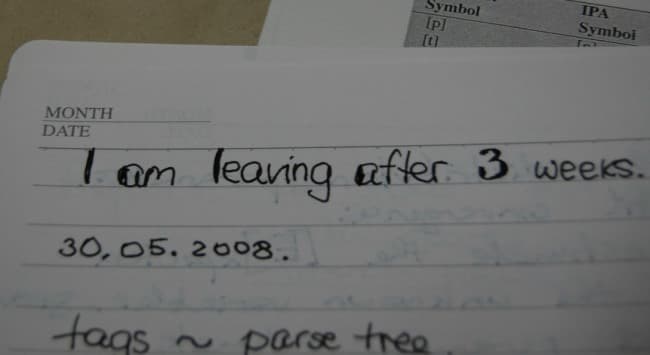 Symbol
IPA
Symbol
[p]
[t]
MONTH
DATE
I am leaving after 3 weeks.
30.05.2008.
tags ~ parse tree